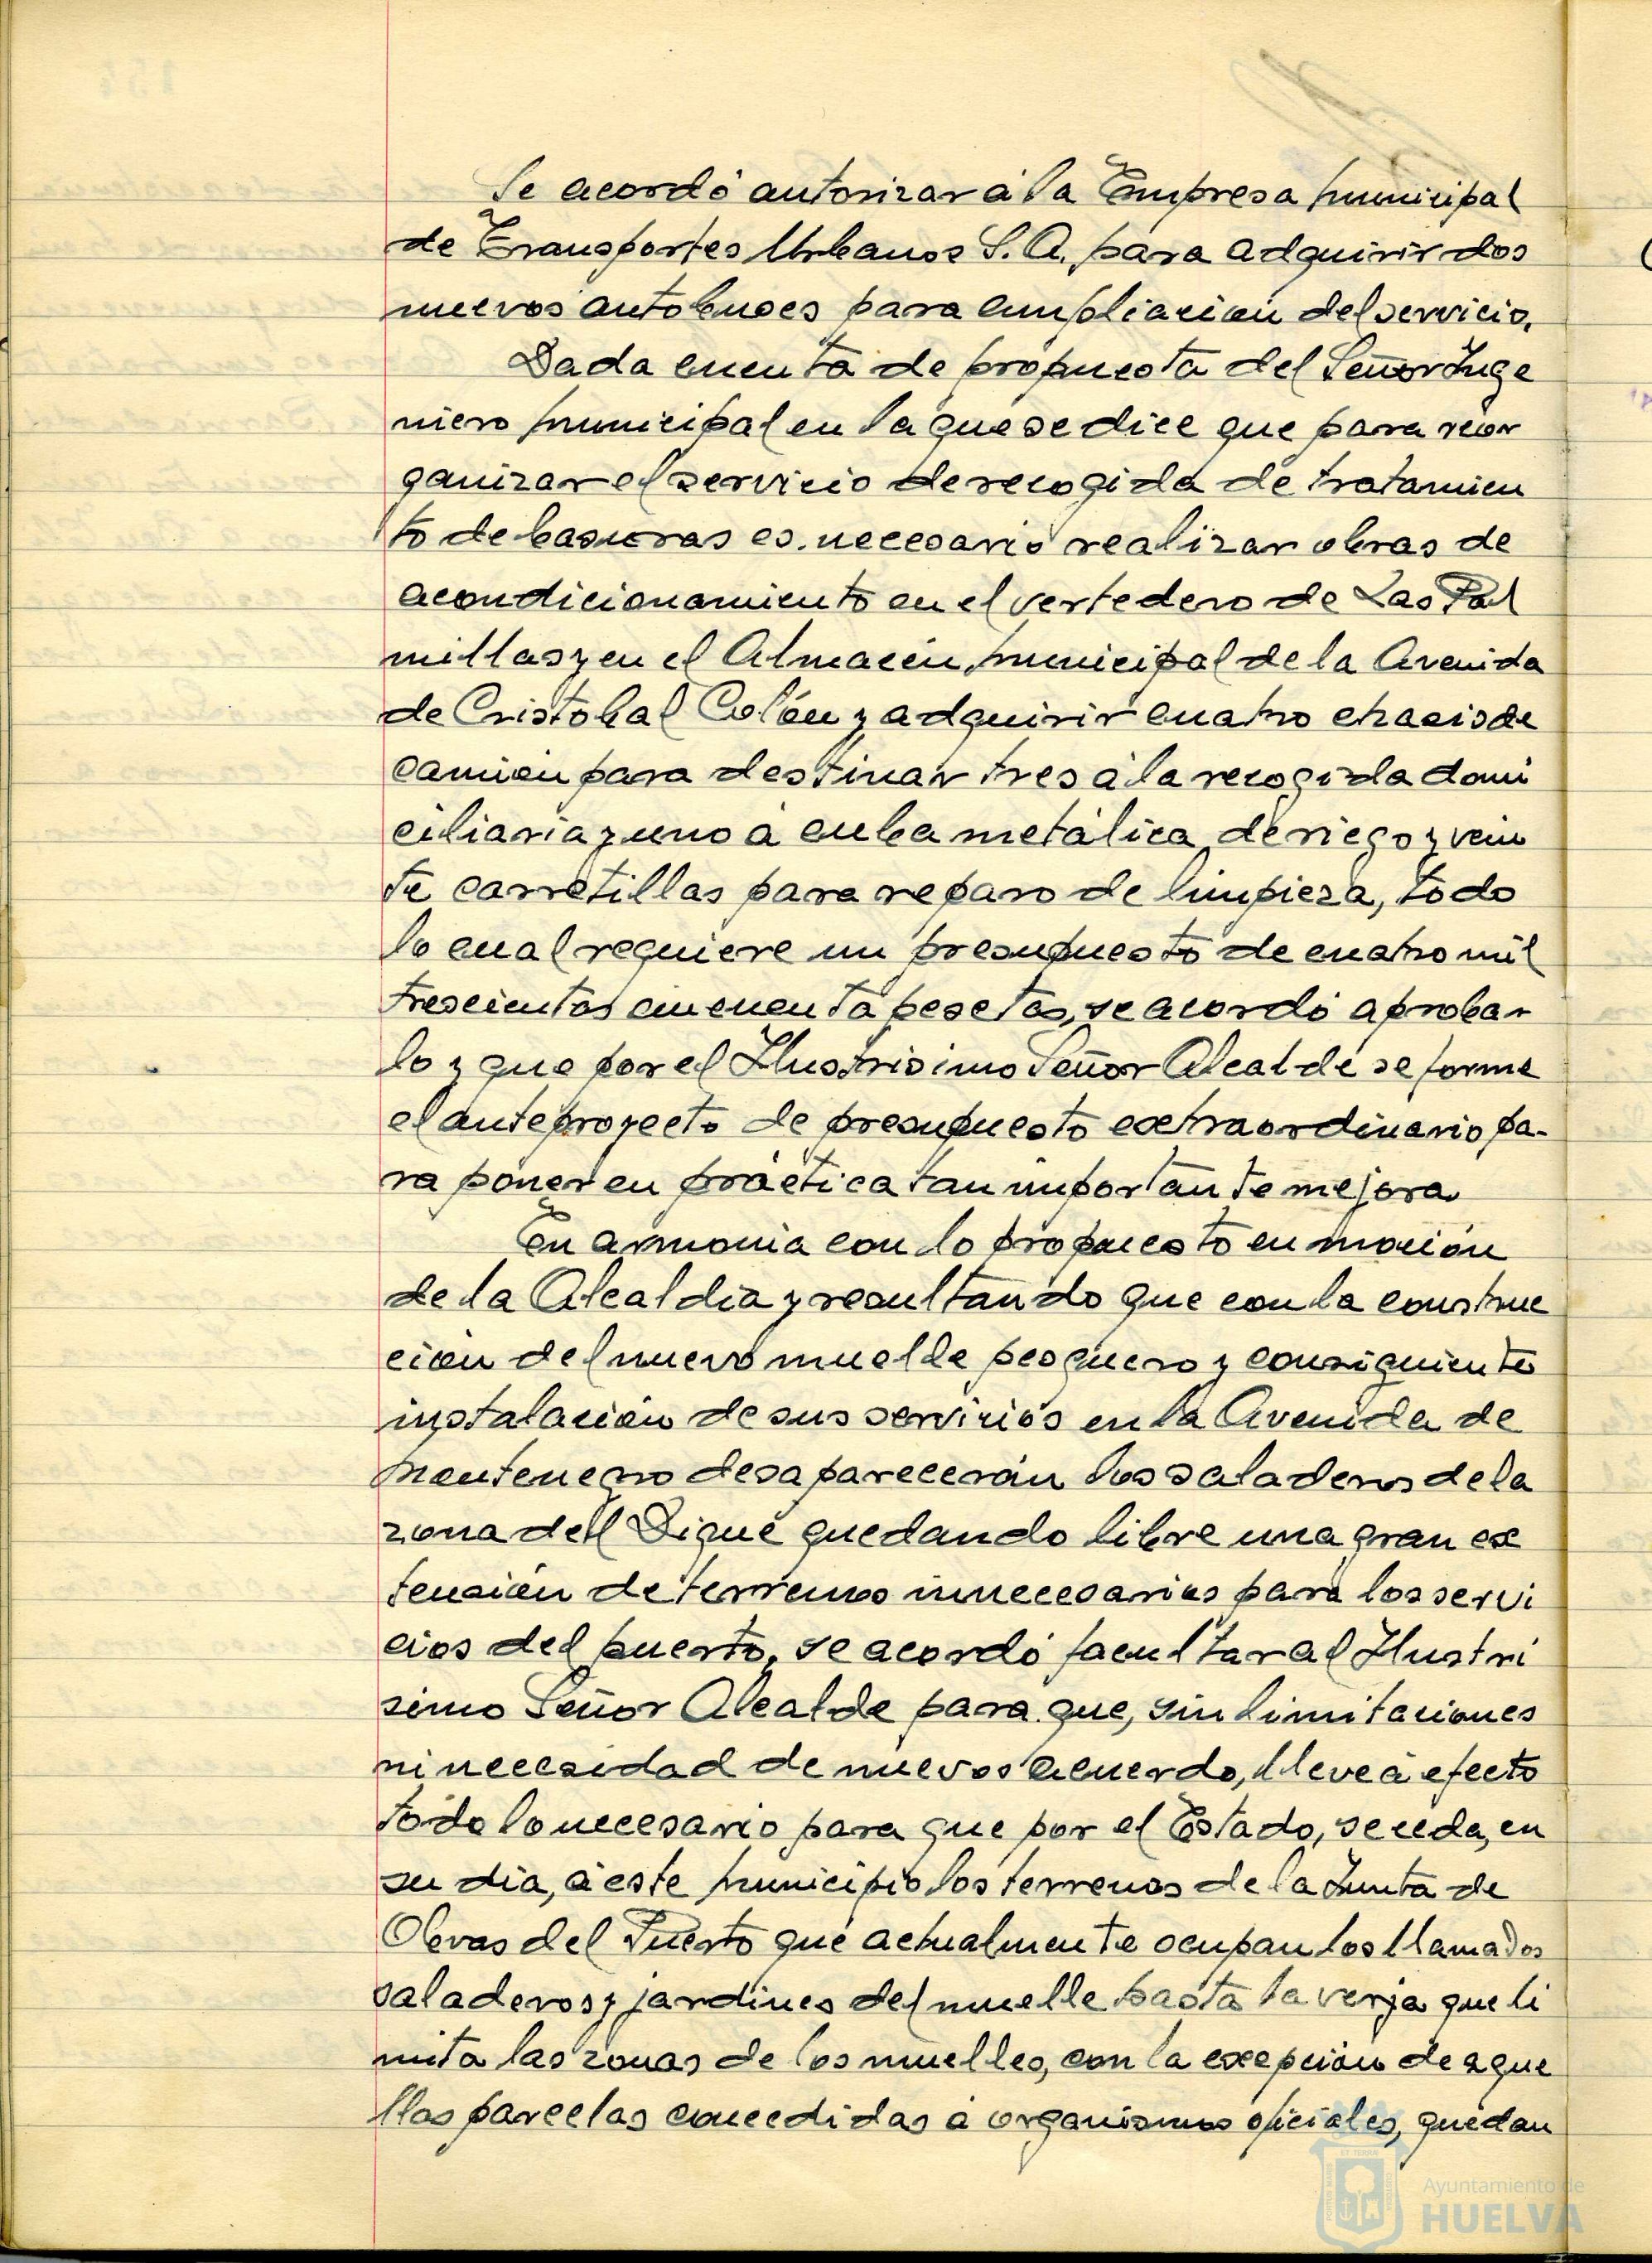 Se acordó autorizar á la Empresa municipal
de Transportes Urbanos S.A. para adquirir dos
nuevos autobuses para ampliación del servicio.
Dada cuenta de propuesta del Señor Inge
niero municipal en la que se dice que para reor
ganizar el servicio de recogida de tratamien
to de basuras es necesario realizar obras de
acondicionamiento en el vertedero de Las Pal
millas y en el Almacén municipal de la Avenida
de Cristobal Colón y adquirir cuatro chasis de
camión para destinar tres á la recogida domi
ciliaria y uno á cuba metálica de riego y vein
te carretillas para reparo de limpieza, todo
lo cual requiere un presupuesto de cuatro mil
trescientas cincuenta pesetas, se acordó aprobar
lo y que por el Ilustrisimo Señor Alcalde se forme
el anteproyecto de presupuesto extraordinario pa-
ra poner en práctica tan importante mejora.
En armonia con lo propuesto en moción
de la Alcaldia y resultando que con la construc
ción del nuevo muelle pesquero y consiguiente
instalación de sus servicios en la Avenida de
Montenegro desaparecerán los saladeros de la
zona del Dique quedando libre una gran ex
tensión de terrenos innecesarios para los servi
cios del puerto, se acordó facultar al Ilustri
simo Señor Alcalde para que, sin limitaciones
ni necesidad de nuevos acuerdo, lleve á efecto
todo lo necesario para que por el Estado, se ceda, en
su dia, á este municipio los terrenos de la Junta de
Obras del Puerto que actualmente ocupan los llamados
saladeros y jardines del muelle hasta la verja que li
mita las zonas de los muelles, con la excepción de aque
llas parcelas concedidas á organismos oficiales, quedan
Ayuntamiento de
HUELVA